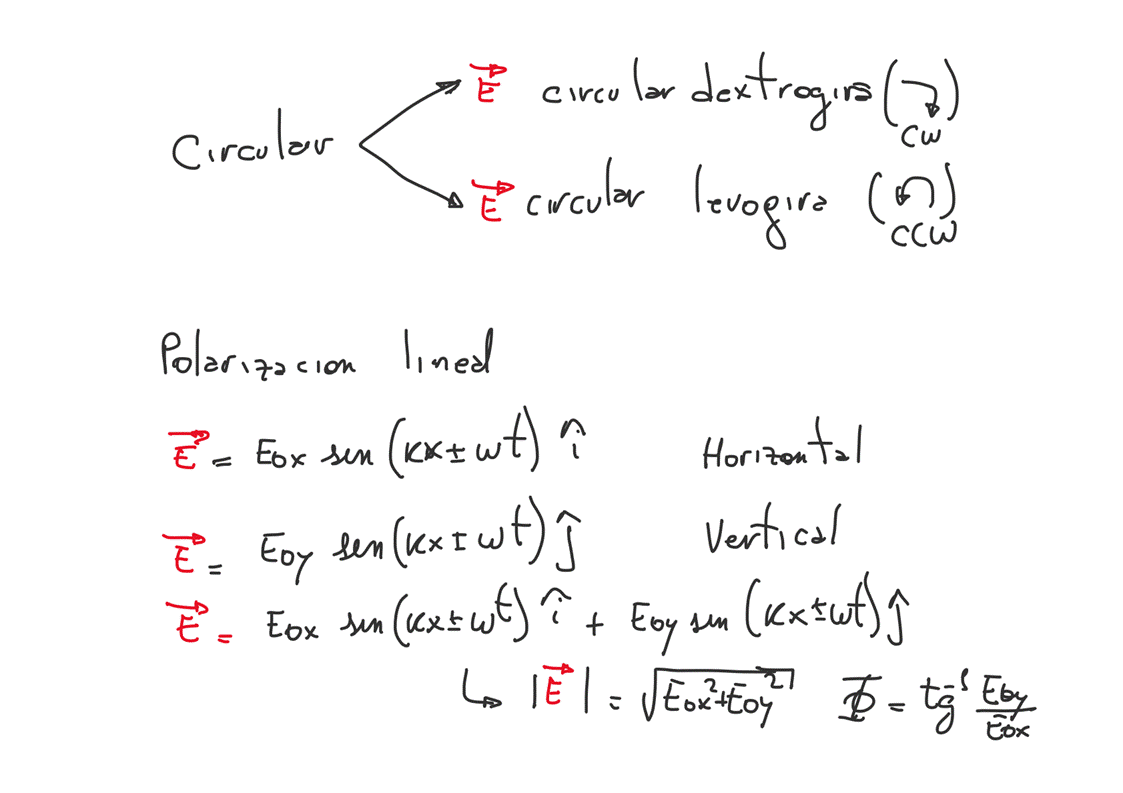 E⃗ circular dextrogira (↷ CW)
Circular
E⃗ circular levogira (↶ CCW)
Polarizacion lineal
E⃗ = Eox sen (kx ± ωt) î Horizontal
E⃗ = Eoy sen (kx ± ωt) ĵ Vertical
E⃗ = Eox sen (kx ± ωt) î + Eoy sen (kx ± ωt) ĵ
↳ |E⃗| = √(Eox² + Eoy²) Φ = tg⁻¹ Eoy/Eox